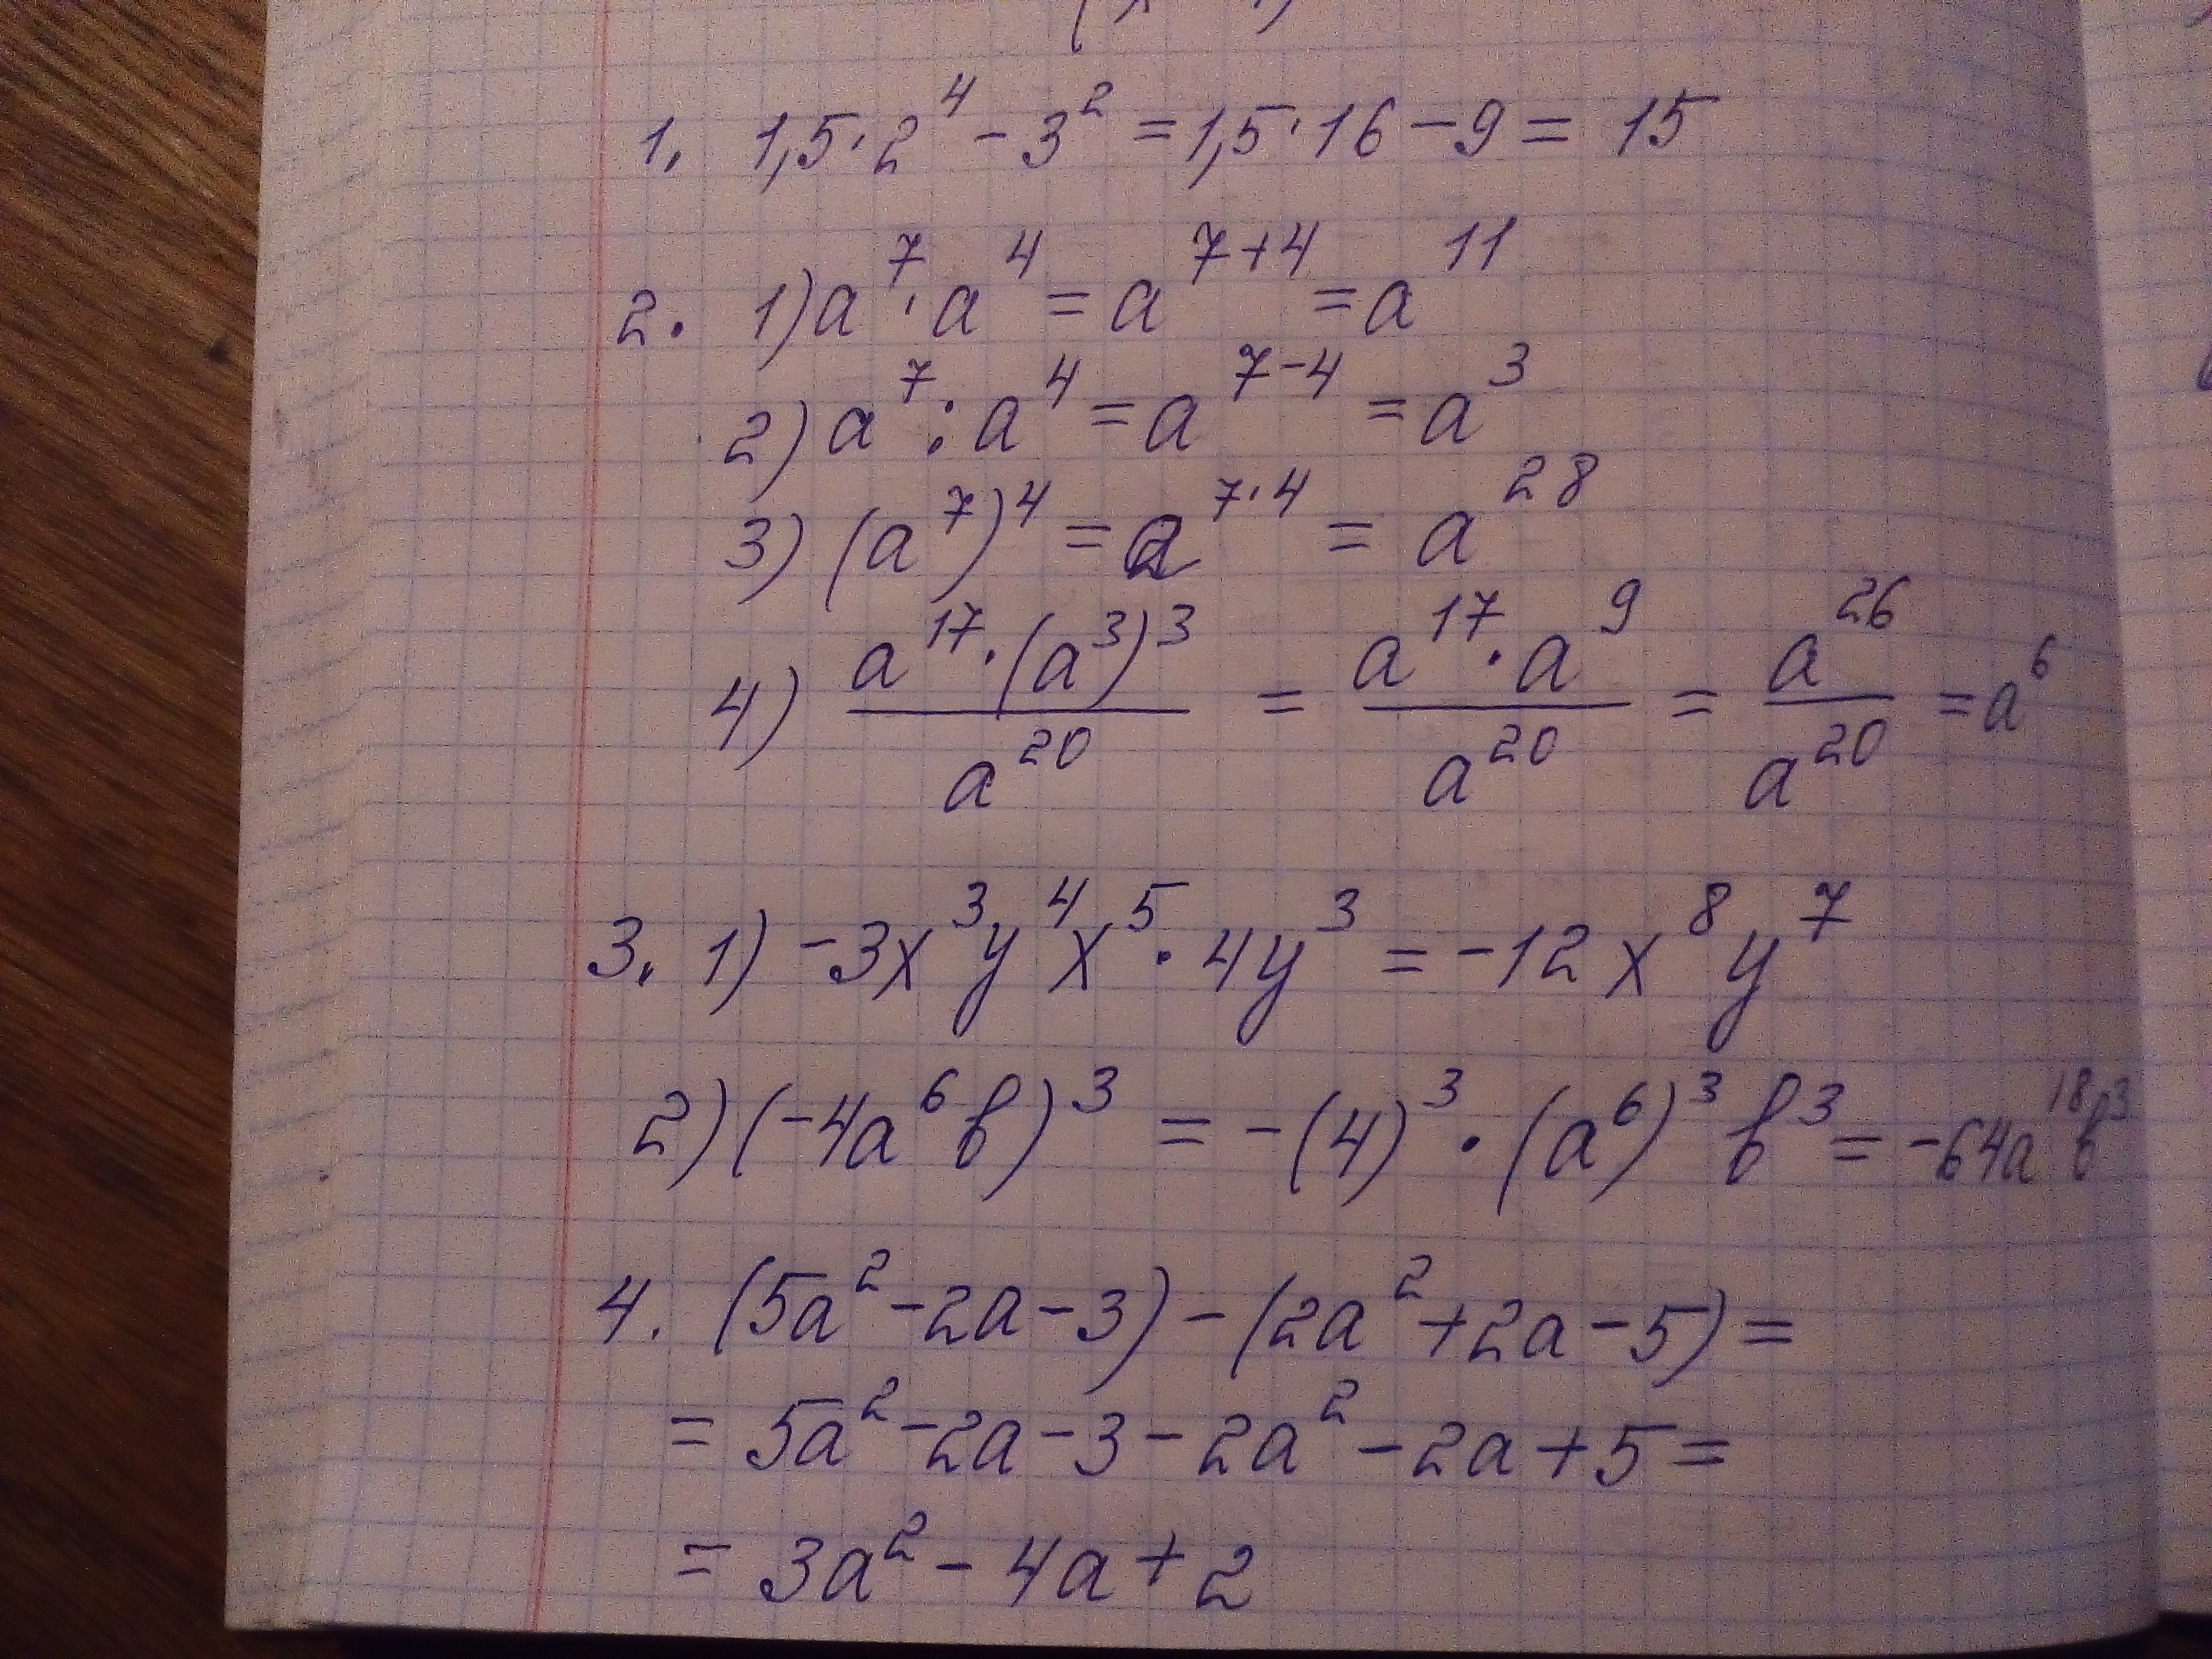 1. 1,5·2⁴ - 3² = 1,5·16 - 9 = 15
2. 1) a⁷·a⁴ = a⁷⁺⁴ = a¹¹
2) a⁷ : a⁴ = a⁷⁻⁴ = a³
3) (a⁷)⁴ = a^(7·4) = a²⁸
4) (a¹⁷·(a³)³)/a²⁰ = (a¹⁷·a⁹)/a²⁰ = a²⁶/a²⁰ = a⁶
3. 1) -3x³y⁴x⁵·4y³ = -12x⁸y⁷
2) (-4a⁶b)³ = -(4)³·(a⁶)³b³ = -64a¹⁸b³
4. (5a²-2a-3)-(2a²+2a-5)=
= 5a²-2a-3-2a²-2a+5=
= 3a²-4a+2